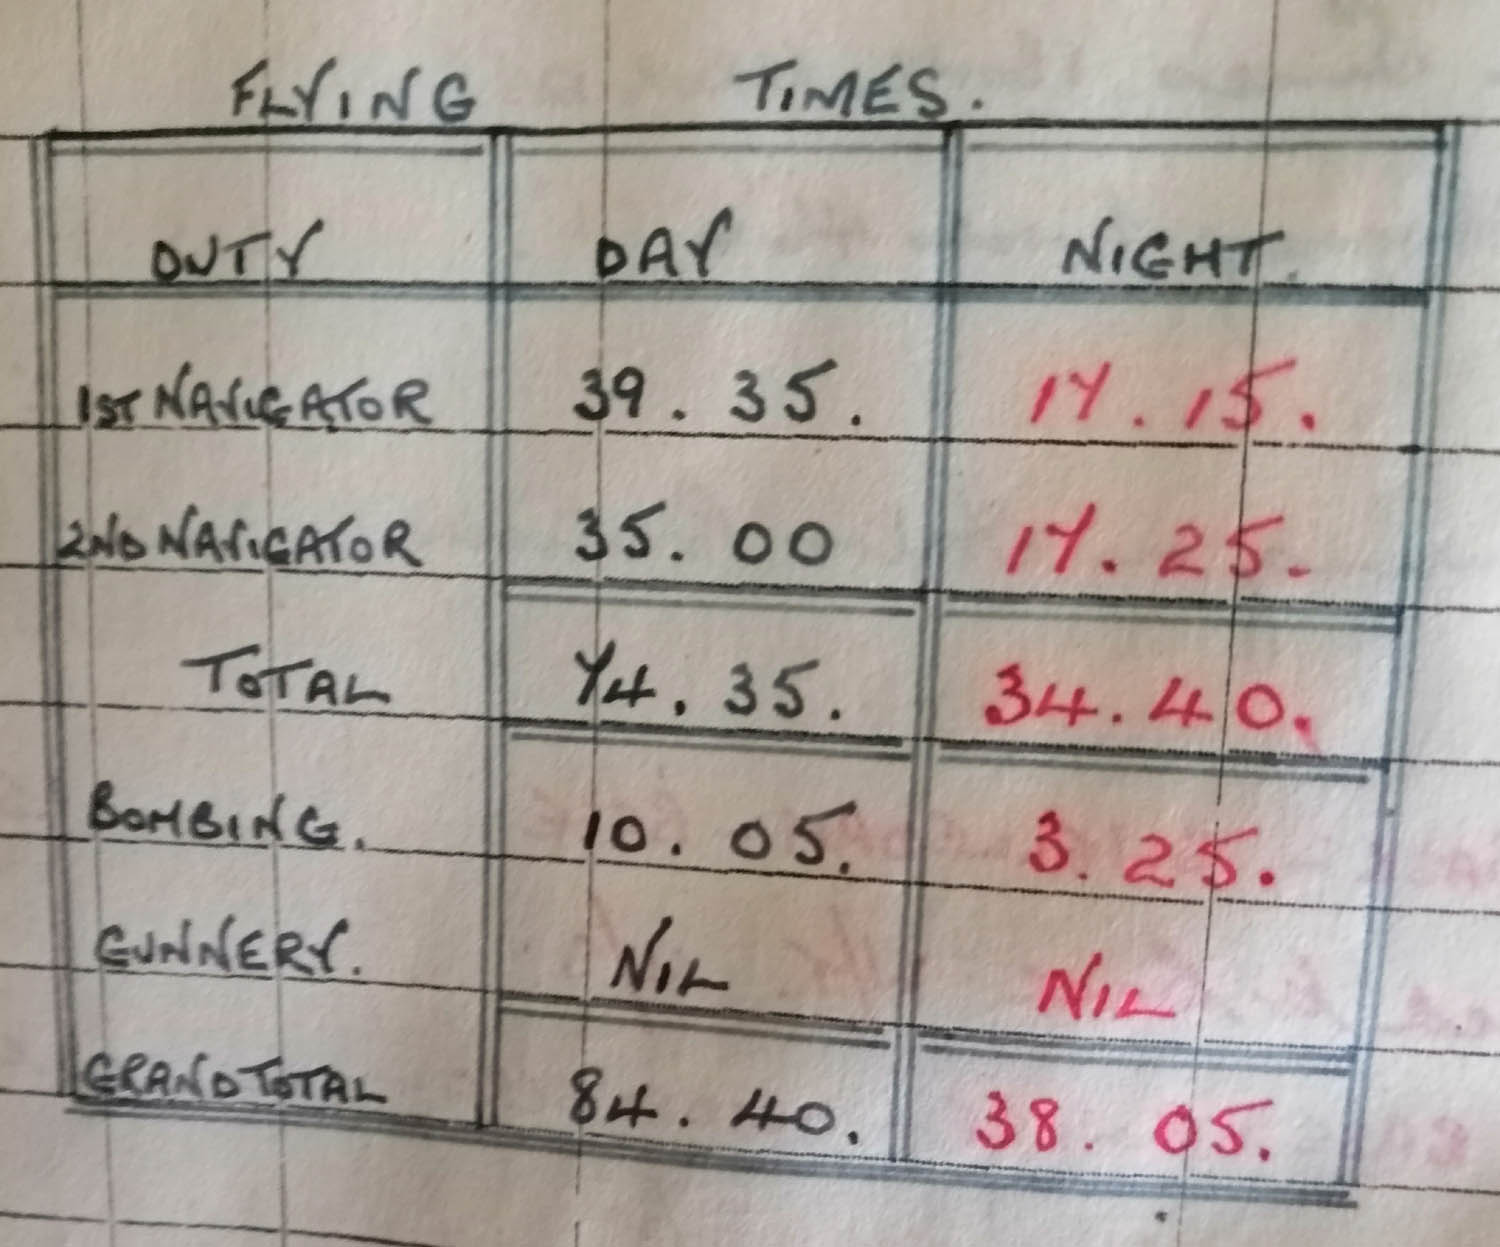 FLYING TIMES.
DUTY DAY NIGHT.
1ST NAVIGATOR 39. 35. 17. 15.
2ND NAVIGATOR 35. 00 17. 25.
TOTAL 74. 35. 34. 40.
BOMBING. 10. 05. 3. 25.
GUNNERY. NIL NIL
GRAND TOTAL 84. 40. 38. 05.